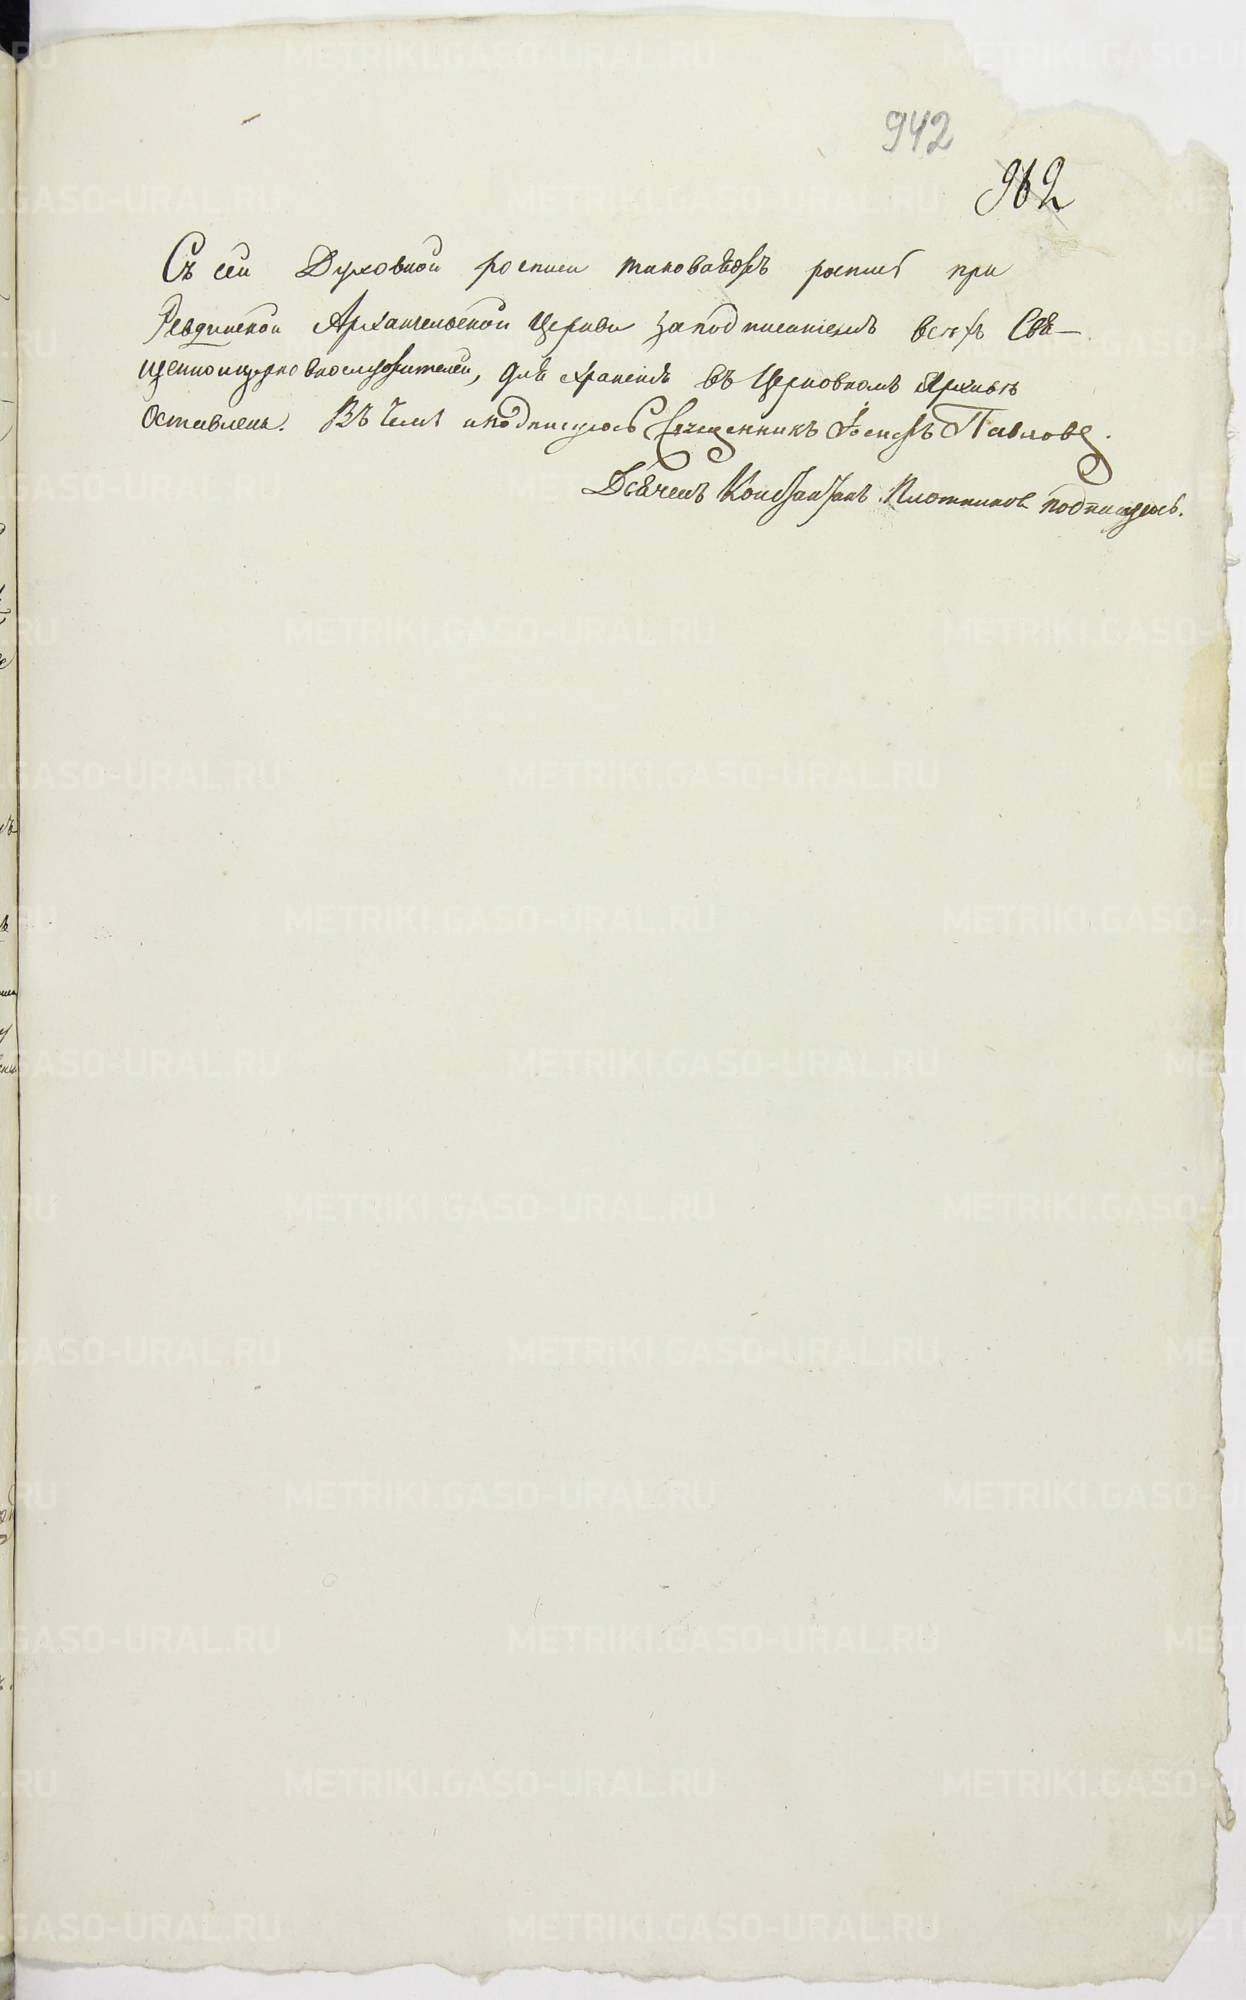 942
962
Съ сей Духовной росписи таковаяжъ роспись при
Ревдинской Архангельской Церкви заподписаниемъ всѣхъ Свя-
щенноицерковнослужителей, для храненія въ Церковномъ Архивѣ
Оставлена. Въ чемъ иподписуюсь Священникъ Іосифъ Павловъ.
Дьячекъ Константинъ Плотниковъ подписуюсь.